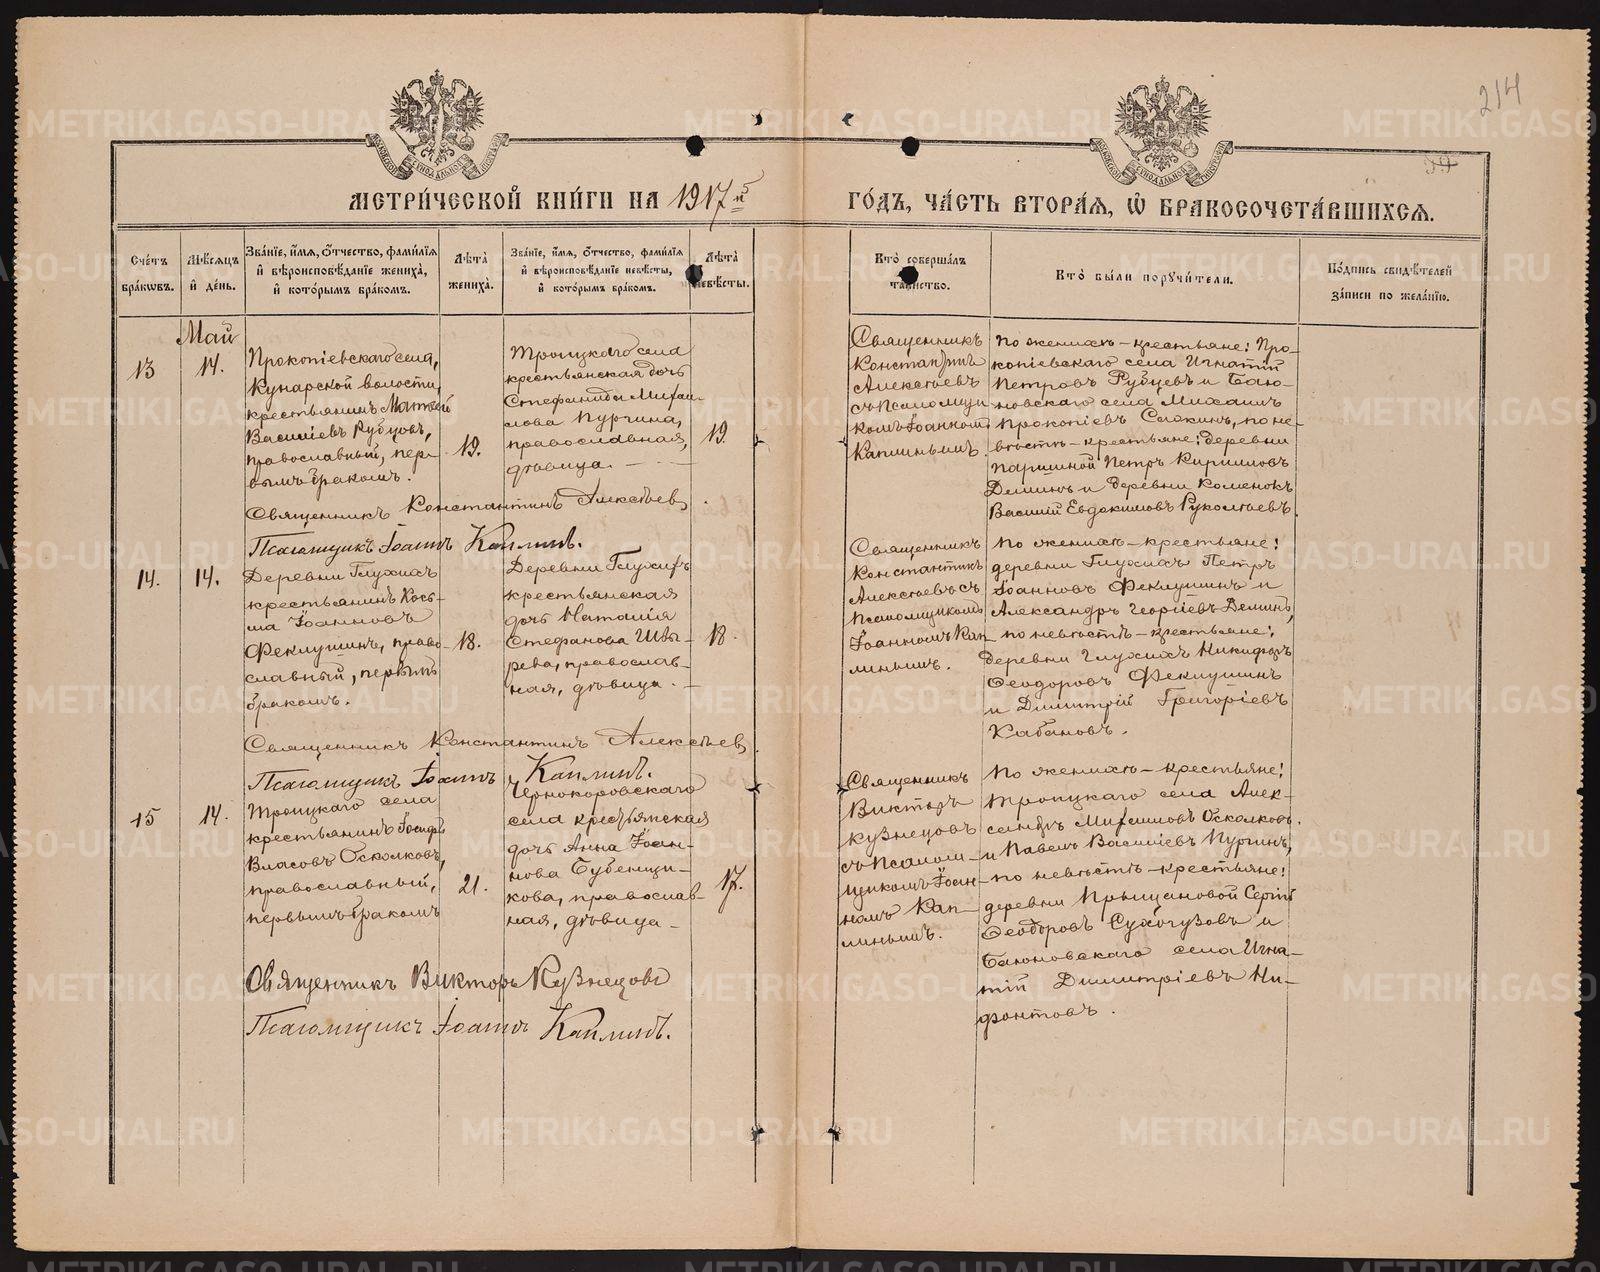 214
МЕТРИ́ЧЕСКОЙ КНИ́ГИ НА 1917й
ГО́ДЪ, ЧА́СТЬ ВТОРА́Я, Ѡ҆ БРАКОСОЧЕТА́ВШИХСЯ.
Сче́тъ бра́кѡвъ.
Мѣ́сяцъ и҆ де́нь.
Зва́нїе, и҆́мя, ѻ҆́тчество, фами́лїя
и҆ вѣроисповѣ́данїе жениха̀,
и҆ кото́рымъ бра́комъ.
Лѣ́та жениха̀.
Зва́нїе, и҆́мя, ѻ҆́тчество, фами́лїя
и҆ вѣроисповѣ́данїе невѣ́сты,
и҆ кото́рымъ бра́комъ.
Лѣ́та невѣ́сты.
Кто̀ соверша́лъ
та́инство.
Кто̀ бы́ли порꙋчи́тели.
По́дпись свидѣ́телей
за́писи по жела́нїю.
13
Май
14.
Прокопіевскаго села,
Кунарской волости,
крестьянинъ Матвей
Василіевъ Рубцовъ,
православный, пер-
вымъ бракомъ.
19.
Троицкаго села
крестьянская дочь
Стефанида Михаи-
лова Пургина,
православная,
дѣвица. —
19.
Священникъ
Константинъ
Алексѣевъ
съ Псаломщи
комъ Іоанномъ
Каплинымъ.
По женихѣ – крестьяне: Про-
копіевскаго села Игнатій
Петровъ Рубцевъ и Баю-
новскаго села Михаилъ
Прокопіевъ, по не-
вѣстѣ – крестьяне: деревни
Паршиной Петръ Кирилловъ
Деминъ и деревни Каменокъ
Василій Евдокимовъ Руколѣевъ.
Священникъ Константинъ Алексѣевъ.
Псаломщикъ Іоаннъ Каплинъ.
14.
14.
Деревни Глухихъ
крестьянинъ Кось-
ма Іоанновъ
Феклушинъ, право-
славный, первымъ
бракомъ.
18.
Деревни Глухихъ
крестьянская
дочь Наталія
Стефанова Швы-
рева, православ-
ная, дѣвица. —
18.
Священникъ
Константинъ
Алексѣевъ съ
Псаломщикомъ
Іоанномъ Кап-
линымъ.
По женихѣ – крестьяне:
деревни Глухихъ Петръ
Іоанновъ Феклушинъ и
Александръ Георгіевъ Деминъ,
по невѣстѣ – крестьяне:
деревни Глухихъ Никифоръ
Ѳеодоровъ Феклушинъ
и Димитрій Григоріевъ
Кабановъ.
Священникъ Константинъ Алексѣевъ.
Псаломщикъ Іоаннъ Каплинъ.
15
14.
Троицкаго села
крестьянинъ Іосифъ
Власовъ Осколковъ,
православный,
первымъ бракомъ
21.
Чернокоровскаго
села крестьянская
дочь Анна Іоан-
нова Бубенщи-
кова, православ-
ная, дѣвица —
17.
Священникъ
Викторъ
Кузнецовъ
съ Псалом-
щикомъ Іоан-
номъ Кап-
линымъ.
По женихѣ – крестьяне:
Троицкаго села Алек-
сандръ Осколковъ.
и Павелъ Василіевъ Пургинъ,
по невѣстѣ – крестьяне:
деревни Прищановой Сергій
Ѳеодоровъ Сухогузовъ и
Баюновскаго села Игна-
тій Димитріевъ Ни-
фонтовъ.
Священникъ Викторъ Кузнецовъ
Псаломщикъ Іоаннъ Каплинъ.